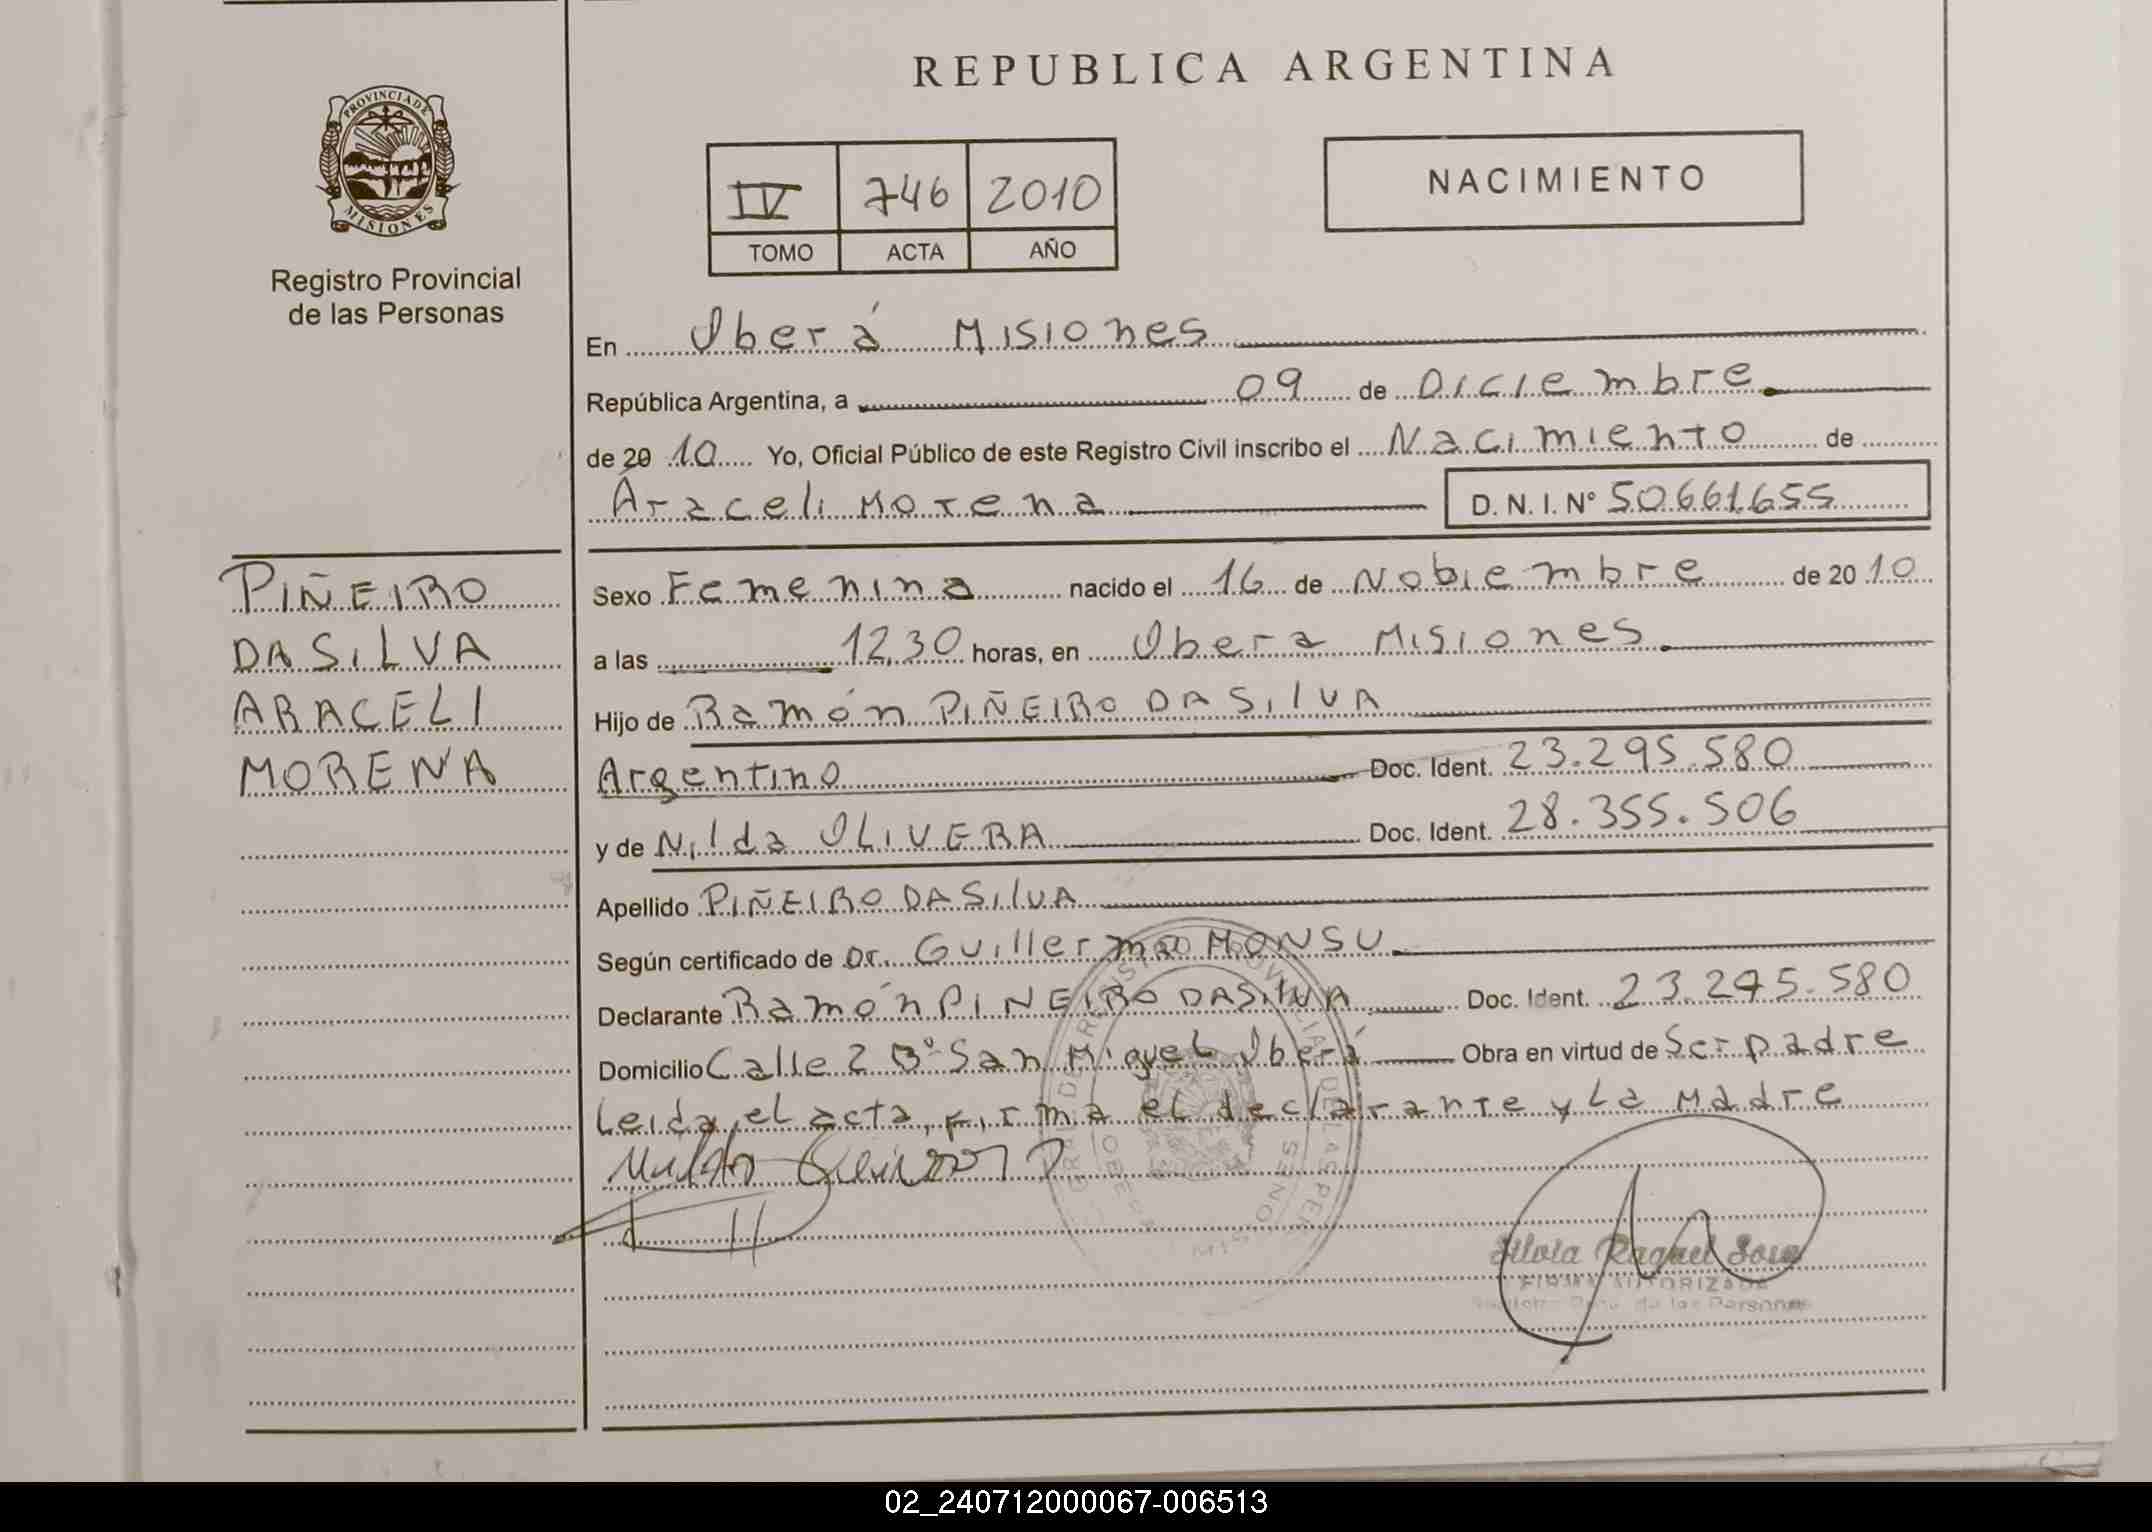 REPUBLICA ARGENTINA
PROVINCIA DE
MISIONES
Registro Provincial
de las Personas
IV 746 2010
TOMO ACTA AÑO
NACIMIENTO
En Oberá Misiones
República Argentina, a 09 de Diciembre
de 20 10 Yo, Oficial Público de este Registro Civil inscribo el Nacimiento de
Araceli Morena D. N. I. Nº 50661655
PIÑEIRO
DASILVA
ARACELI
MORENA
Sexo Femenina nacido el 16 de Nobiembre de 20 10
a las 12,30 horas, en Obera Misiones
Hijo de Ramón PIÑEIRO DASILVA
Argentino Doc. Ident. 23.295.580
y de Nilda OLIVERA Doc. Ident. 28.355.506
Apellido PIÑEIRO DASILVA
Según certificado de Dr. Guillermo MONSU
Declarante Ramón PINEIRO DASILVA Doc. Ident. 23.295.580
Domicilio Calle 2 Bº San Miguel Oberá Obra en virtud de Ser padre
Leida el acta, firma el declarante y La Madre
Silvia Raquel Sosa
FIRMA AUTORIZADA
de las Personas
02_240712000067-006513